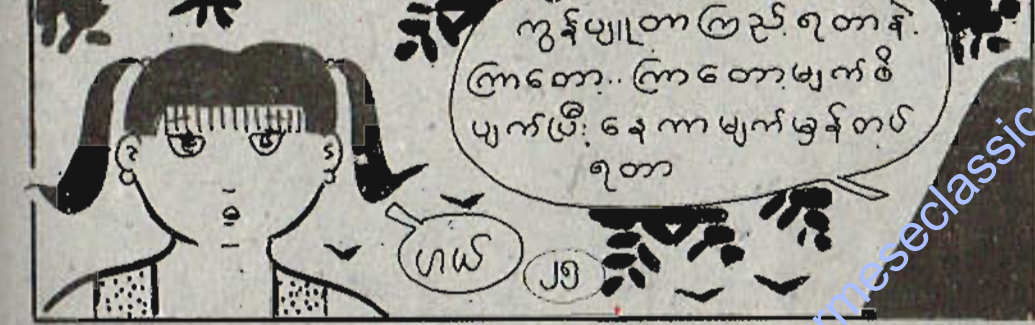 ကွန်ပျူတာကြည့်ရတာနဲ့
ကြာတော့..ကြာတော့မျက်စိ
ပျက်ပြီးနေကာမျက်မှန်တပ်
ရတာ
ဟယ်
၂၅
rmeseclassic